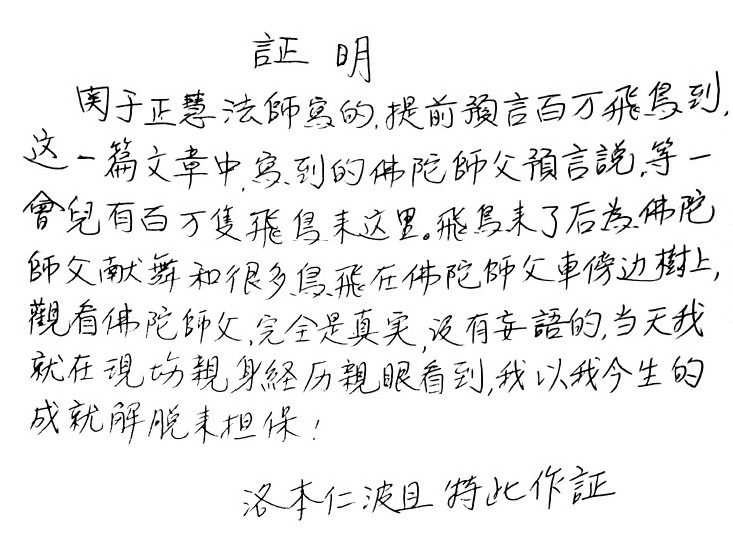 証明
関于正慧法師寫的,提前預言百万飛鳥到,
这一篇文章中,寫到的佛陀師父預言說,等一
會兒有百万隻飛鳥来这里。飛鳥来了后為佛陀
師父献舞和很多鳥飛在佛陀師父車傍边樹上,
觀看佛陀師父,完全是真実,没有妄語的,当天我
就在現场親身経历親眼看到,我以我今生的
成就解脫来担保!
洛本仁波且 特此作証